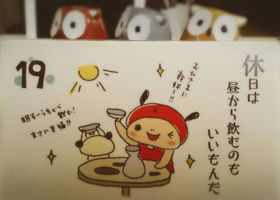 19
休日は
昼から飲むのも
いいもんだ
おひさまに
乾杯!!
明るいうちから飲む!
まさに至福!!